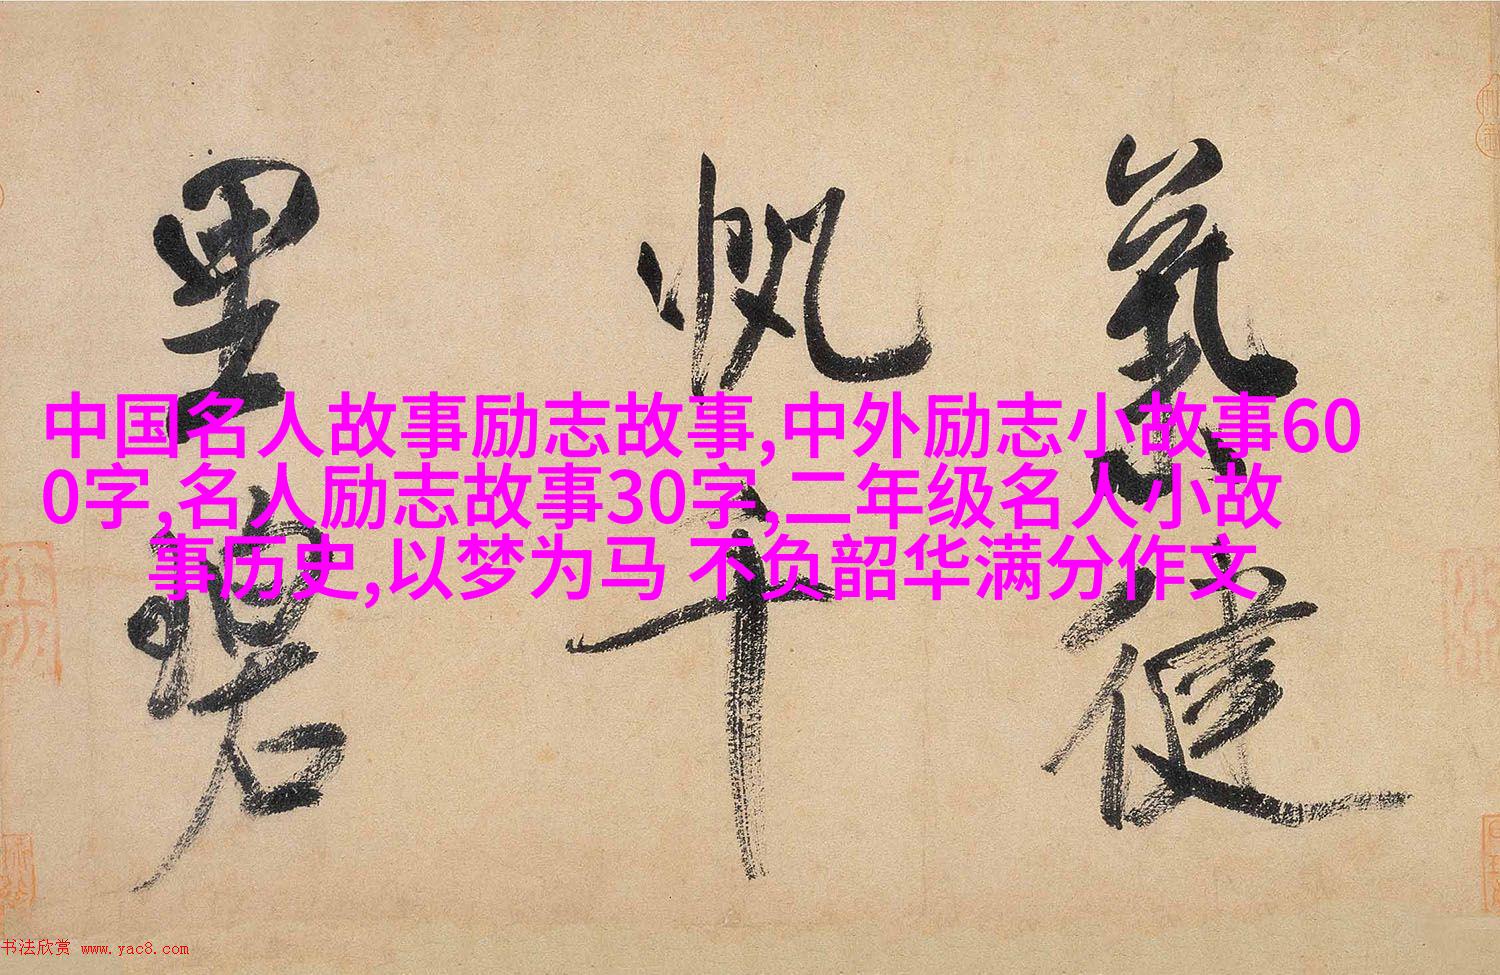 氣健
帆千
里碧
中国名人故事励志故事,中外励志小故事60
0字,名人励志故事30字,二年级名人小故
事历史,以梦为马 不负韶华满分作文
书法欣赏 www.yac8.com